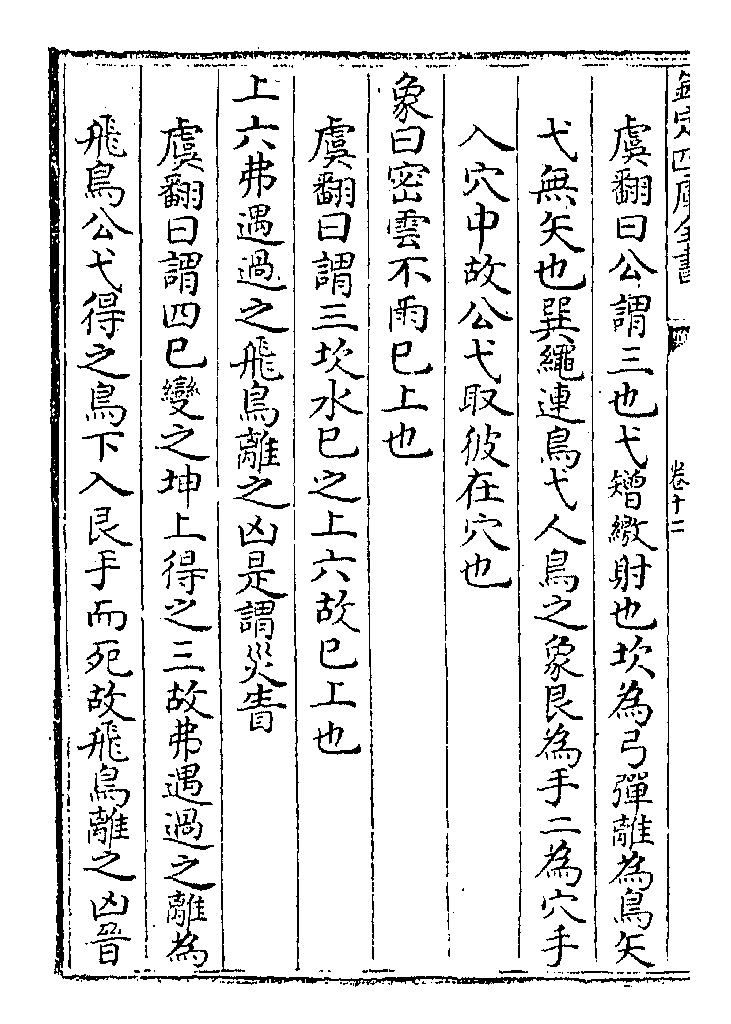 欽定四庫全書
卷十二
虞翻曰公謂三也弋矰繳射也坎為弓彈離為鳥矢
弋無矢也巽繩連鳥弋人鳥之象艮為手二為穴手
入穴中故公弋取彼在穴也
象曰密雲不雨已上也
虞翻曰謂三坎水已之上六故已上也
上六弗遇過之飛鳥離之凶是謂災眚
虞翻曰謂四已變之坤上得之三故弗遇過之離為
飛鳥公弋得之鳥下入艮手而死故飛鳥離之凶晉